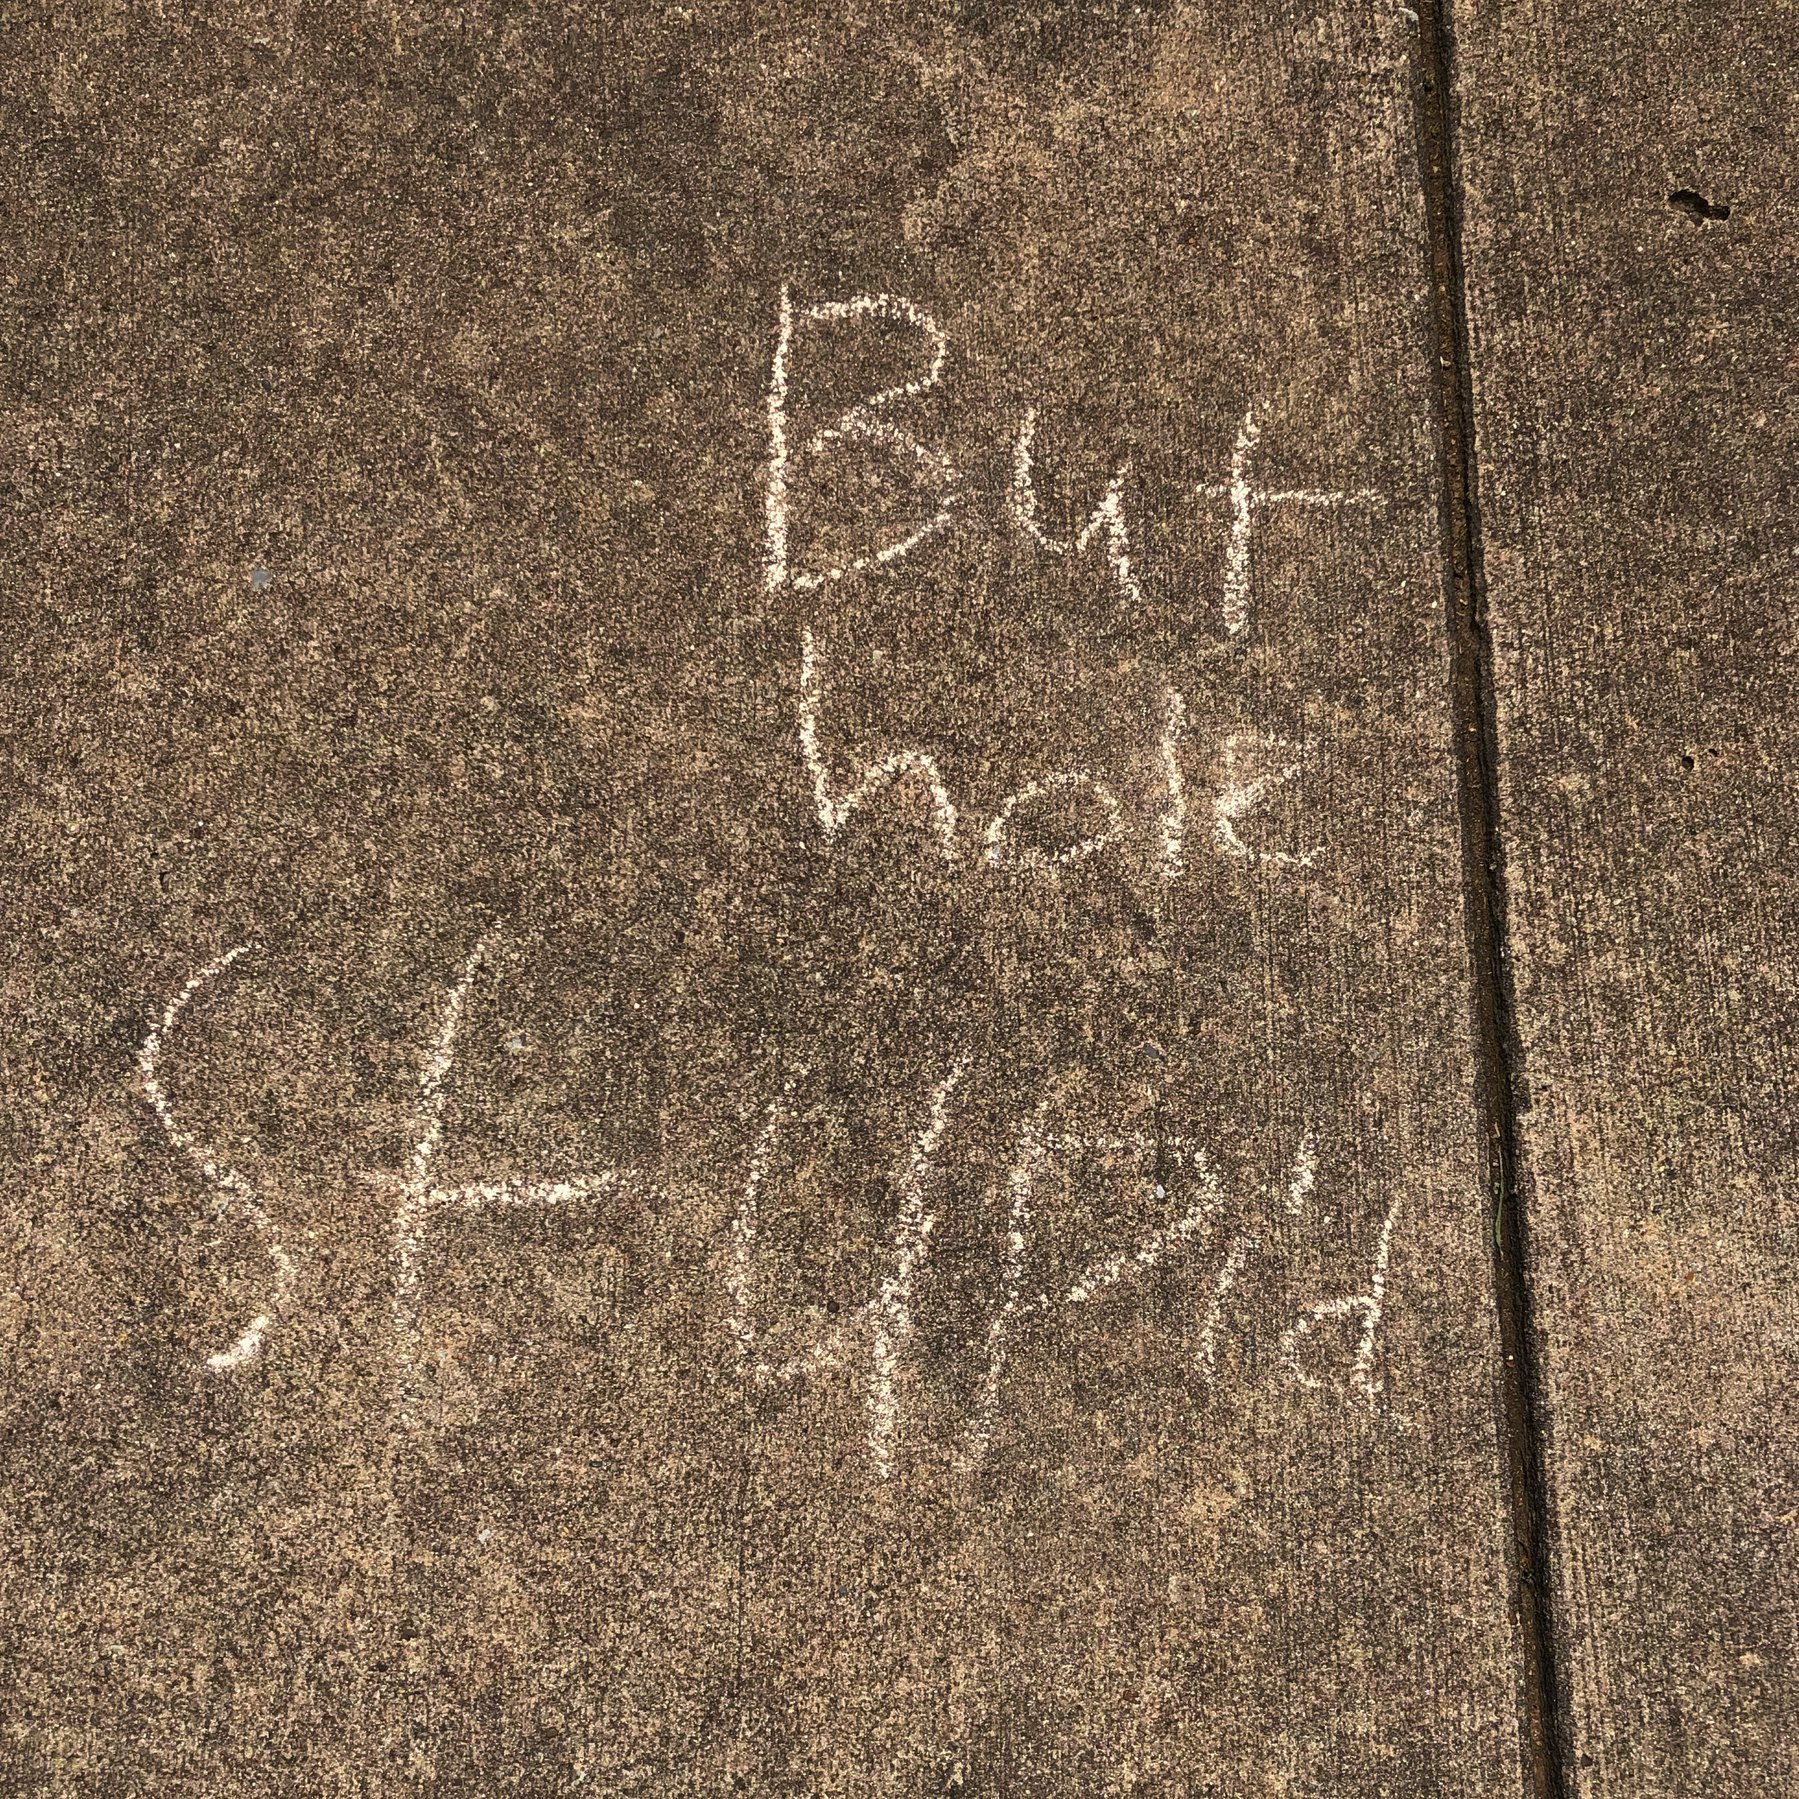 But
hole
Stupid